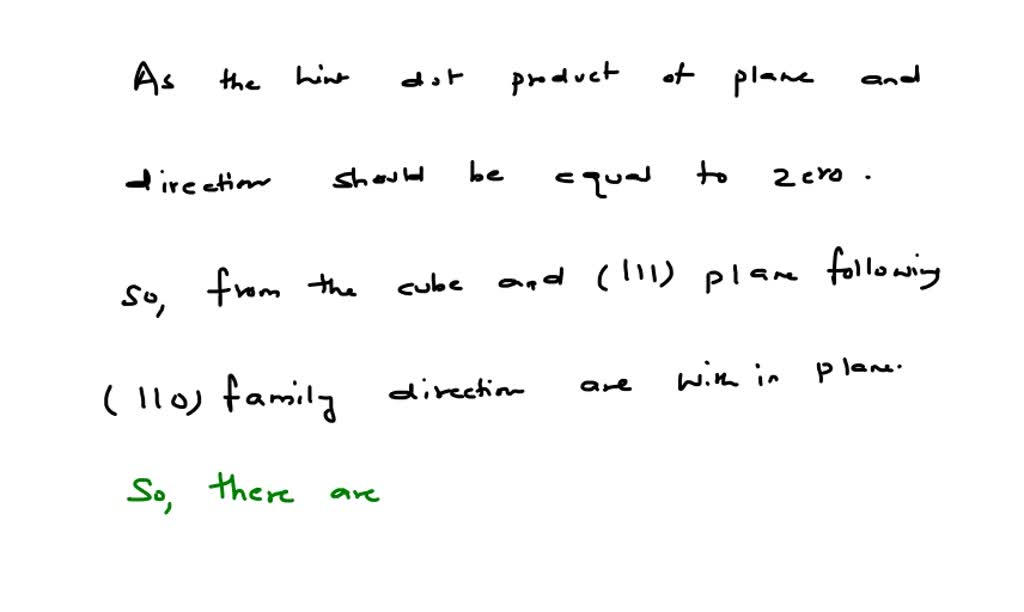 As the hint dot product of plane and
direction should be equal to zero.
So, from the cube and (111) plane following
(110) family direction are with in plane.
So, there are